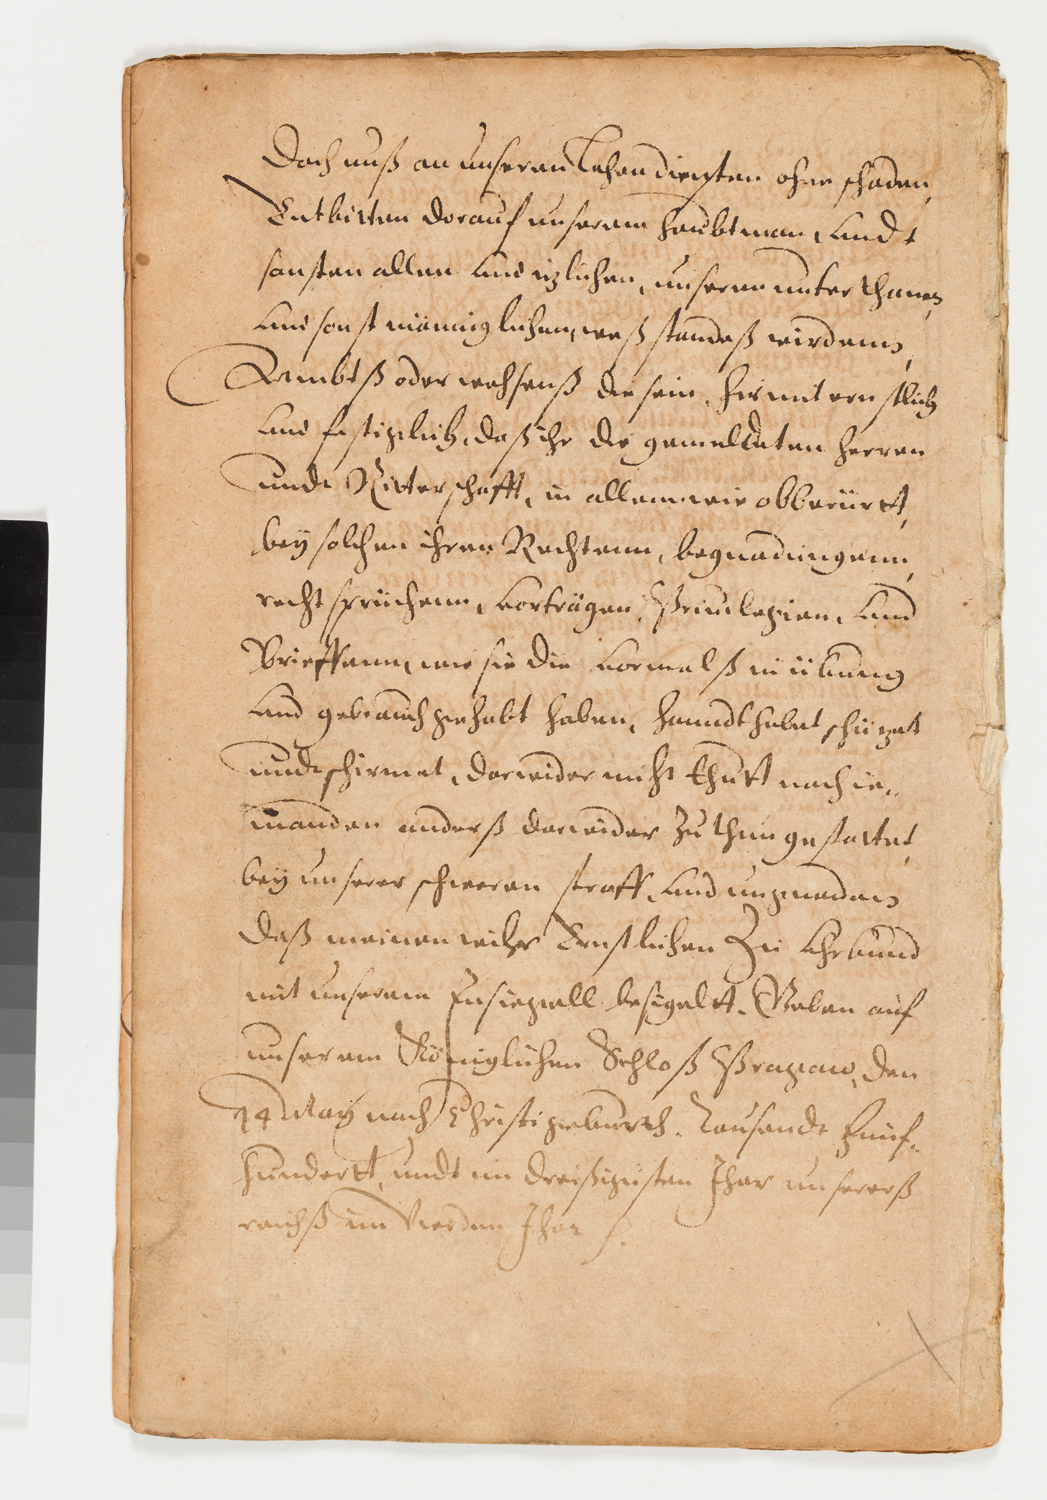 Doch unß an unseren Lehendiensten ohne schaden,
Entbitten dorauf unserem haubtman, undt
sonsten allen und izlichen, unseren unterthanen,
und sonst männiglichen, weß standeß wirdenn,
Ambtß oder wehsenß die sein, hirmit ernstlich
und festiglich, daß ihr die gemeldeten herren
unde Ritterschafft, in allem wie obberürtt,
bey solchen ihren Rechtenn, begnadungenn,
rechtsprüchenn, vorträgen, Priuilegien, und
Brieffenn, wie sie die vormalß in übung
und gebrauch gehabt haben, handthabet schüzet
unde schirmet, darwider nicht thutt noch ie„
manden anderß darwider zu thun gestattet,
bey unserer schweren straff, und ungnaden
daß meinen wihr Ernstlichen Zu uhrkund
mit unserem Insiegell besigeltt. Geben auf
unserem Königlichen Schloß Pragaw, den
14 May nach Christi geburth. Tausende Fünf„
hundertt, undt im dreißigisten Jhar unsererß
reichß im Vierden Jhar